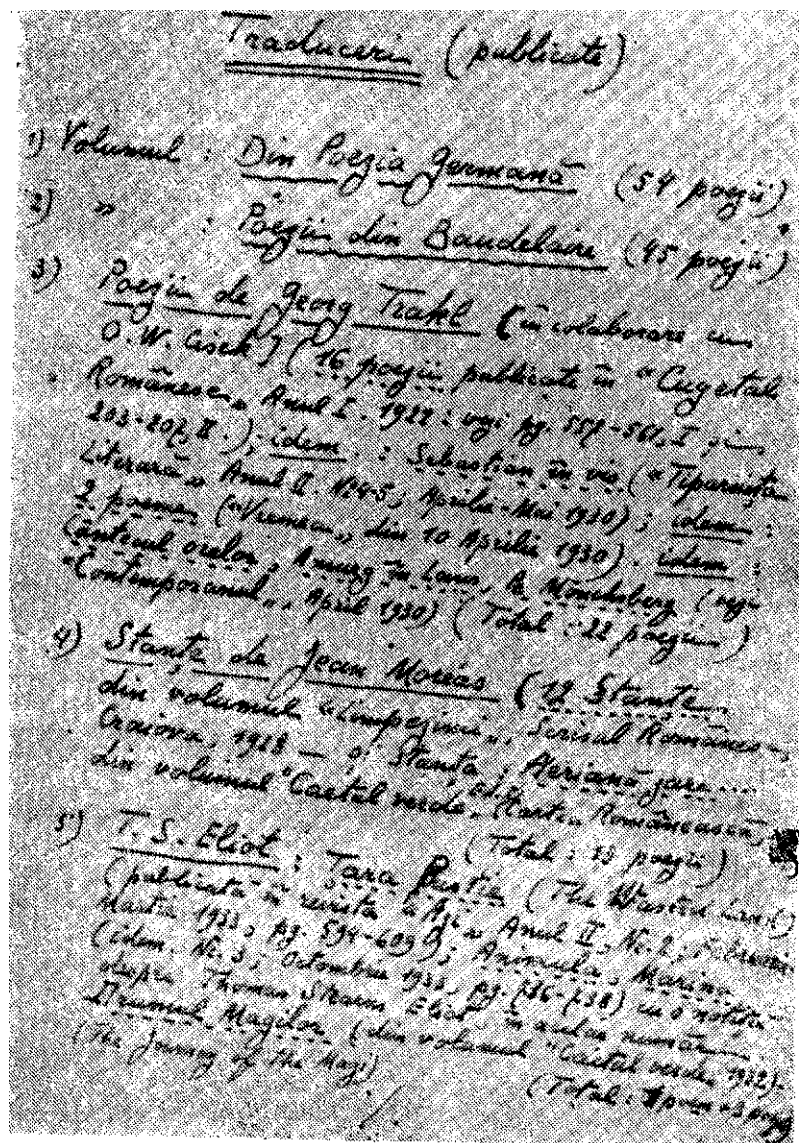 Traduceri (publicate)
1) Volumul : Din Poezia Germană (54 poezii)
2) " : Poezii din Baudelaire (45 poezii)
3) Poezii de Georg Trakl (în colaborare cu
O. W. Cisek) (16 poezii publicate în "Cugetul
Românesc" Anul I. 1922 : vezi pg. 557-561, I ; 
203-207, II.) ; idem : Sebastian în vis ("Tiparnița
Literară" Anul II. Nr 4-5, Aprilie-Mai 1930) ; idem :
2 poeme ("Vremea", din 10 Aprilie 1930). idem :
Cântecul orelor, Amurg în Lans, la Mönchsberg (vezi
"Contimporanul", April 1930) (Total : 22 poezii)
4) Stanțe de Jean Moréas (12 Stanțe
din volumul "Limpezimi", Scrisul Românesc,
Craiova, 1928 — și Stanța : Aeriană țară ...
din volumul "Caetul verde", Cartea Românească)
(Total : 13 poezii)
5) T. S. Eliot : Țara Pustie (The Wasted Land)
(publicată în revista "Azi" Anul II, Nr. 2, Februarie
Martie 1933, pg. 594-609) ; Animula, Marina
(idem, Nr. 5, Octombrie 1933, pg. 736-738) cu o notiță
despre Thomas Stearns Eliot în același număr
Drumul Magilor (din volumul "Caetul verde", 1932)
(The Journey of the Magi)
(Total : 1 poem + 3 poezii)